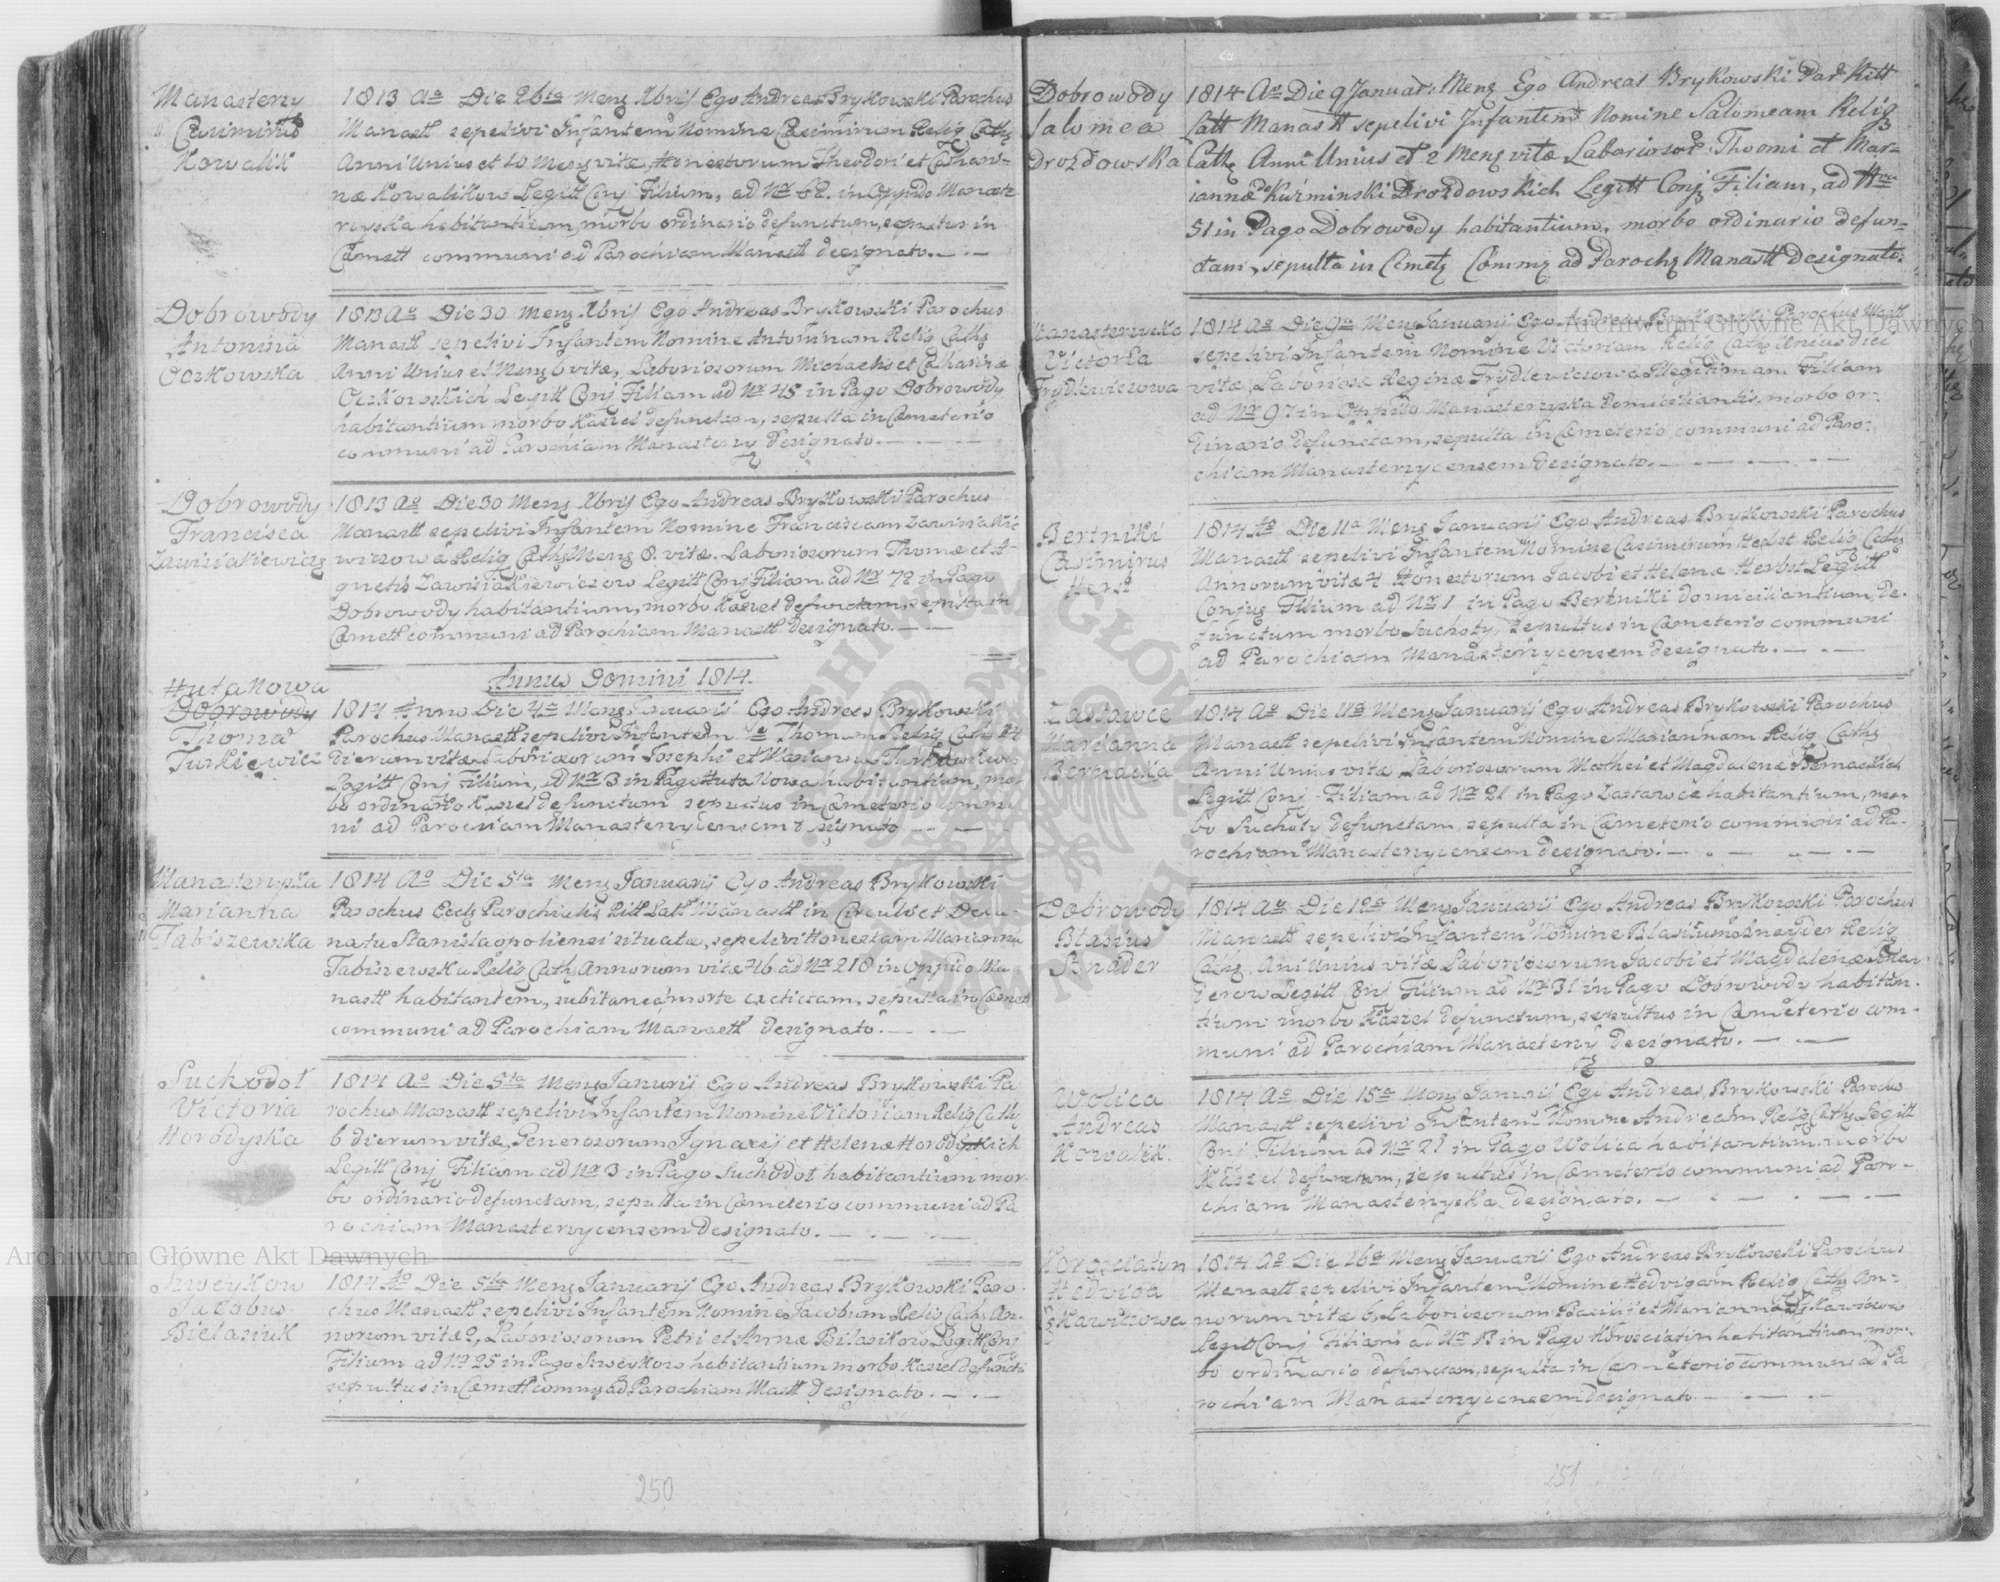 Manasterzy
Casimirus
Kowalik
1813 Aº Die 26ta Mens Xbris Ego Andreas Brykowski Parochus
Manastt sepelivi Infantem Nomine Casimirum Relig Cath
Anni Unius et 10 Mens vitæ, Honestorum Theodori et Cathari-
næ Kowalikow Legitt Conj Filium, ad Nr 62. in Oppido Manaste
rzyska habitantium, morbo ordinario defunctum, sepultus in
Cæmett communi ad Parochiam Manastt designato.
Dobrowody
Antonina
Oczkowska
1813 Aº Die 30 Mens Xbris Ego Andreas Brykowski Parochus
Manastt sepelivi Infantem Nomine Antoninam Relig Cath
Anni Unius et Mens 6 vitæ, Laboriosorum Michaelis et Catharinæ
Oczkowskich Legitt Conj Filiam ad Nr 45 in Pago Dobrowody
habitantium morbo Kaszel defunctam, sepulta in Cæmeterio
communi ad Parochiam Manasterzy designato.
Dobrowody
Francisca
Zawisiakiewicz
1813 Aº Die 30 Mens Xbris Ego Andreas Brykowski Parochus
Manastt sepelivi Infantem Nomine Franciscam Zawisiakie
wiczowa Relig Cath Mens 8. vitæ. Laboriosorum Thomæ et A-
gnetis Zawisiakiewiczow Legitt Conj Filiam ad Nr 72 in Pago
Dobrowody habitantium, morbo Kaszel defunctam, sepulta in
Cæmett communi ad Parochiam Manastt designato.
Annus Domini 1814.
Huta Nowa
Dobrowody
Thoma
Turkiewicz
1814 Anno Die 4ta Mens Januarij Ego Andreas Brykowski
Parochus Manastt sepelivi Infantem Thomam Relig Cath 24
Dierum vitæ Laboriosorum Josephi et Mariannæ
Legitt Conj Filium, ad Nr 3 in Pago Huta Nowa habitantium, mor
bo ordinario Kaszel defunctum sepultus in Cæmeterio commu
ni ad Parochiam Manasterzycensem designato
Manasterzyska
Marianna
Tabiszewska
1814 Aº Die 5ta Mens Januarij Ego Andreas Brykowski
Parochus Eccl Parochialis Ritt Latt Manastt in Circulo et Deca-
natu Stanislaopoliensi situatæ, sepelivi Honestam Mariannam
Tabiszewska Relig Cath Annorum vitæ 46 ad Nr 218 in Oppido Ma
nastt habitantem, subitanea morte exctictam, sepulta in Cæmett
communi ad Parochiam Manastt designato.
Suchodoł
Victoria
Horodyska
1814 Aº Die 5ta Mens Januarij Ego Andreas Brykowski Pa
rochus Manastt sepelivi Infantem Nomine Victoriam Relig Cath
6 dierum vitæ, Generosorum Ignacij et Helenæ Horodyskich
Legitt Conj Filiam ad Nr 3 in Pago Suchodoł habitantium mor
bo ordinario defunctam, sepulta in Cæmeterio communi ad Pa
rochiam Manasterzycensem designato.
Szweykow
Jacobus
Bielasiuk
1814 Aº Die 5ta Mens Januarij Ego Andreas Brykowski Paro
chus Manastt sepelivi Infantem Nomine Jacobum Relig Cath An
norum vitæ 2, Laboriosorum Petri et Annæ Legitt Conj
Filium ad Nr 25 in Pago Szweykow habitantium morbo Kaszel defunctū
sepultus in Cæmett commu ad Parochiam Mastt designato.
250
Dobrowody
Salomea
Drozdowska
1814 Aº Die 9 Januar: Mens Ego Andreas Brykowski Par Ritt
Latt Manastt sepelivi Infantem Nomine Salomeam Relig
Cath Anni Unius et 2 Mens vitæ Laborioso Thomi et Mar=
iannæ de Kuźminski Drozdowskich Legitt Conj Filiam, ad Nru
51 in Pago Dobrowody habitantium, morbo ordinario defun-
ctam, sepulta in Cemet Comm ad Paroch Manastt designato.
Manasterzyska
Victoria
Frydlewiczowa
1814 Aº Die 9a Mens Januarij Ego Andreas Brykowski Parochus Mastt
sepelivi Infantem Nomine Victoriam Relig Cath Unius Diei
vitæ, Laboriosæ Reginæ Frydlewiczowa Illegitimam Filiam
ad Nr 97 in Oppido Manasterzyska domiciliantis, morbo or-
dinario defunctam, sepulta in Cæmeterio communi ad Paro-
chiam Manasterzycensem designato.
Bertniki
Casimirus
Herbst
1814 Aº Die 11a Mens Januarij Ego Andreas Brykowski Parochus
Manastt sepelivi Infantem Nomine Casimirum Herbst Relig Cath
Annorum vitæ 4 Honestorum Jacobi et Helenæ Herbst Legitt
Conjug Filium ad Nr 1 in Pago Bertniki domiciliantium, de-
functum morbo Suchoty, sepultus in Cæmeterio communi
ad Parochiam Manasterzycensem designato.
Zastawce
Marianna
Bernacka
1814 Aº Die 11a Mens Januarij Ego Andreas Brykowski Parochus
Manastt sepelivi Infantem Nomine Mariannam Relig Cath
Anni Unius vitæ, Laboriosorum Mathei et Magdalenæ Bernackich
Legitt Conj Filiam ad Nr 21 in Pago Zastawce habitantium, mor
bo Suchoty defunctam, sepulta in Cæmeterio communi ad Pa-
rochiam Manasterzycensem designato.
Dobrowody
Blasius
Sznáder
1814 Aº Die 12a Mens Januarij Ego Andreas Brykowski Parochus
Manastt sepelivi Infantem Nomine Blasium Relig
Cath. Anni Unius vitæ Laboriosorum Jacobi et Magdalenæ
Legitt Conj Filium ad Nr 31 in Pago Dobrowody habitan-
tium morbo Kaszel defunctum, sepultus in Cæmeterio com-
muni ad Parochiam Manasterzy designato.
Wolica
Andreas
Kowalik.
1814 Aº Die 15a Mens Januarij Ego Andreas, Brykowski Parochus
Manastt sepelivi Infantem Nomine Andream Relig Cath Legitt
Conj Filium ad Nr 21 in Pago Wolica habitantium morbo
Kaszel defunctum, sepultus in Cæmeterio communi ad Paro-
chiam Manasterzyska designato.
Korosciatyn
Hedviga
1814 Aº Die 16a Mens Januarij Ego Andreas Brykowski Parochus
Manastt sepelivi Infantem Nomine Hedvigam Relig Cath An-
norum vitæ 6, Laboriosorum Basilij et Mariannæ
Legitt Conj Filiam ad Nr 13 in Pago Korosciatin habitantium, mor-
bo ordinario defunctam, sepulta in Cæmeterio communi ad Pa
rochiam Manasterzycensem designato.
251
Archiwum Główne Akt Dawnych
Archiwum Główne Akt Dawnych